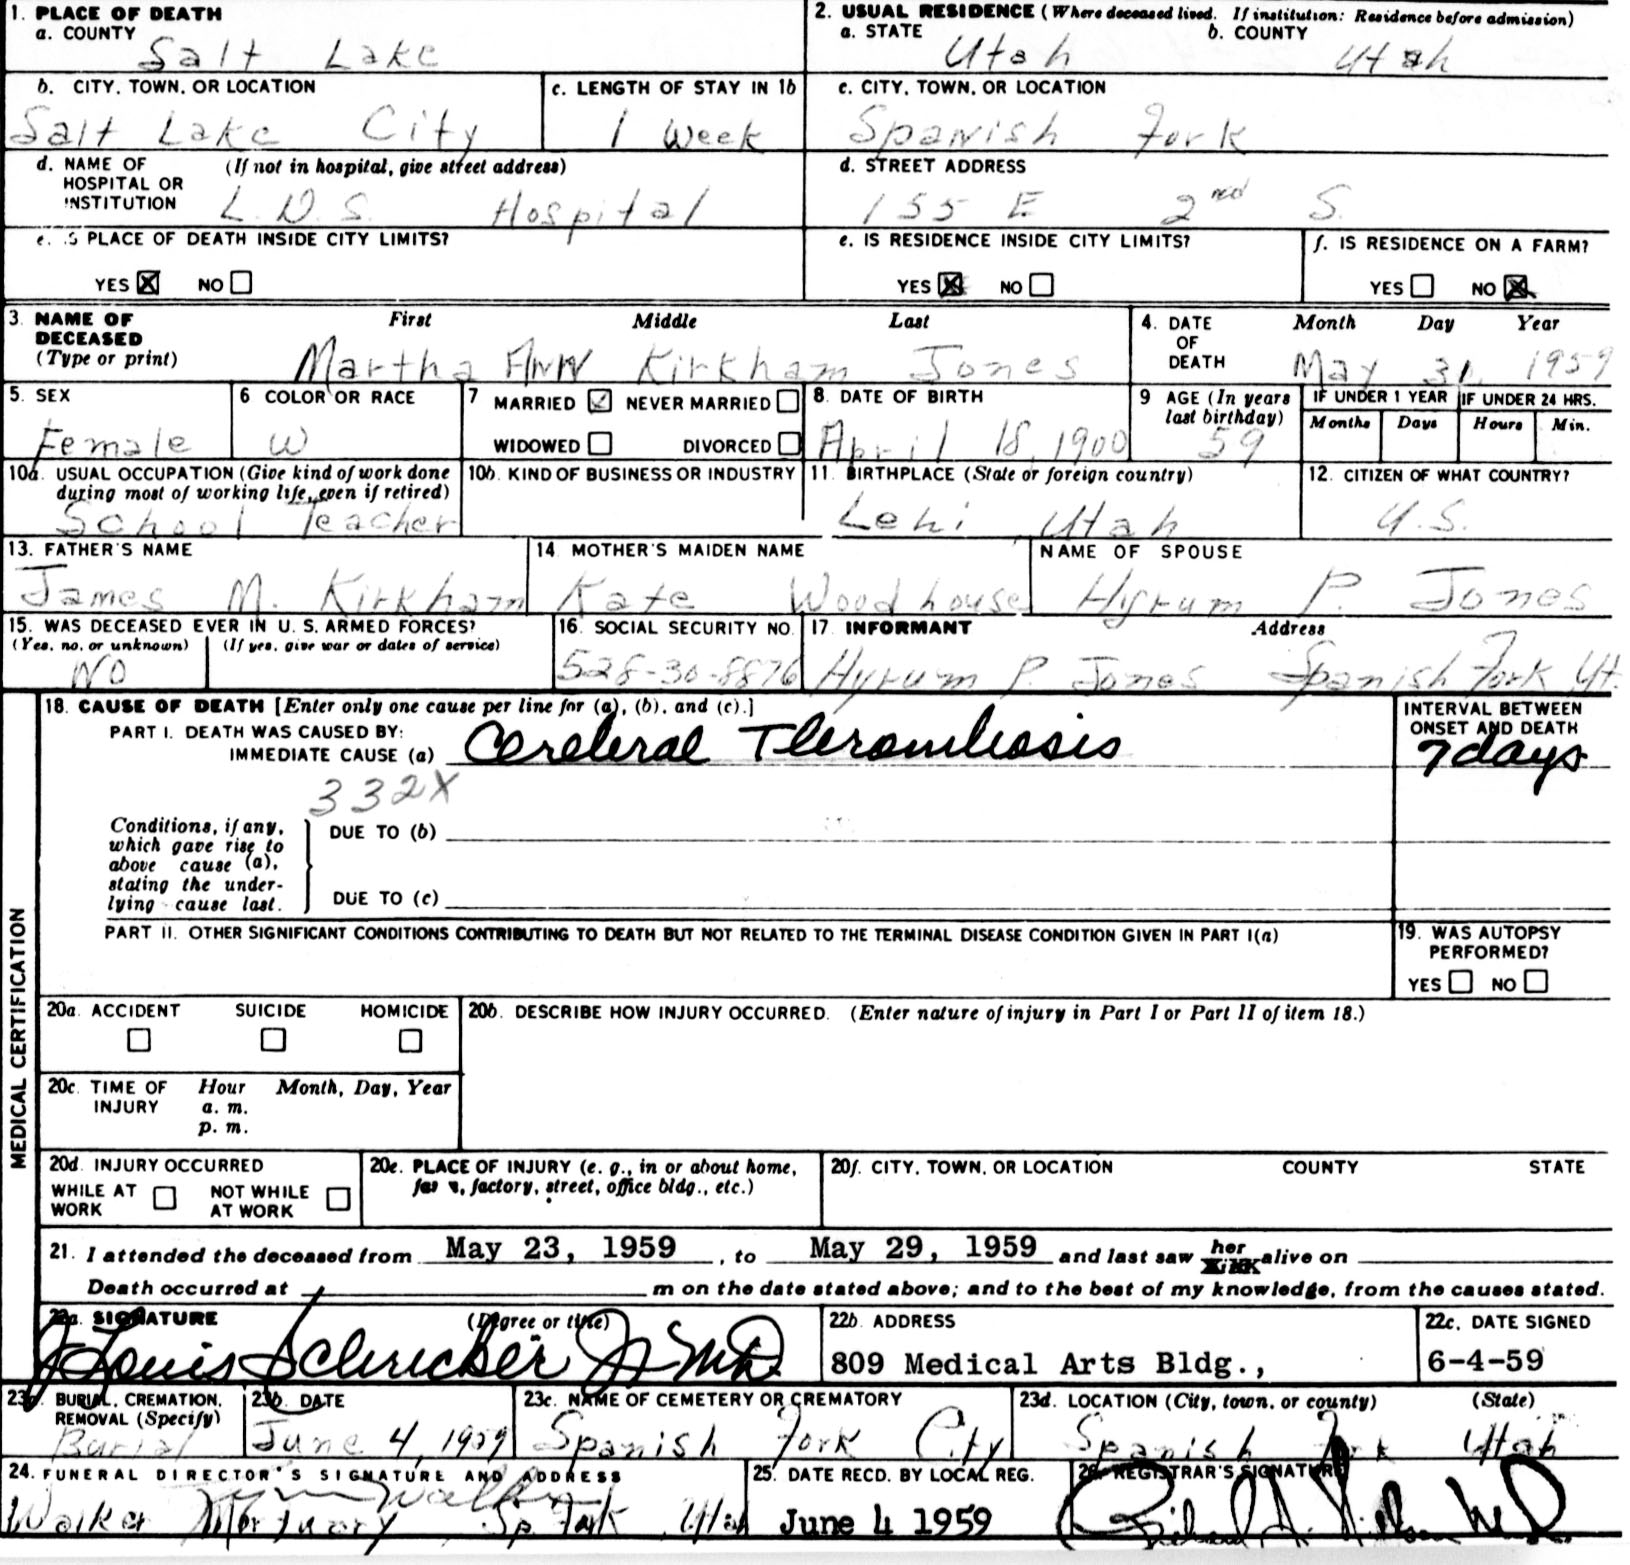 1. PLACE OF DEATH
a. COUNTY
Salt Lake
2. USUAL RESIDENCE (Where deceased lived. If institution: Residence before admission)
a. STATE b. COUNTY
Utah Utah
b. CITY, TOWN, OR LOCATION
Salt Lake City
c. LENGTH OF STAY IN 1b
1 Week
c. CITY, TOWN, OR LOCATION
Spanish Fork
d. NAME OF (If not in hospital, give street address)
HOSPITAL OR
INSTITUTION L.D.S. Hospital
d. STREET ADDRESS
155 E 2nd S.
e. IS PLACE OF DEATH INSIDE CITY LIMITS?
YES ☒ NO ☐
e. IS RESIDENCE INSIDE CITY LIMITS?
YES ☒ NO ☐
f. IS RESIDENCE ON A FARM?
YES ☐ NO ☒
3. NAME OF First Middle Last
DECEASED
(Type or print) Martha Ann Kirkham Jones
4. DATE Month Day Year
OF
DEATH May 31, 1959
5. SEX
Female
6 COLOR OR RACE
W
7 MARRIED ☑ NEVER MARRIED ☐
WIDOWED ☐ DIVORCED ☐
8. DATE OF BIRTH
April 18, 1900
9 AGE (In years
last birthday)
59
IF UNDER 1 YEAR IF UNDER 24 HRS.
Months Days Hours Min.
10a. USUAL OCCUPATION (Give kind of work done
during most of working life, even if retired)
School Teacher
10b. KIND OF BUSINESS OR INDUSTRY
11. BIRTHPLACE (State or foreign country)
Lehi Utah
12. CITIZEN OF WHAT COUNTRY?
U.S.
13. FATHER'S NAME
James M. Kirkham
14 MOTHER'S MAIDEN NAME
Kate Woodhouse
NAME OF SPOUSE
Hyrum P. Jones
15. WAS DECEASED EVER IN U. S. ARMED FORCES?
(Yes, no, or unknown) (If yes, give war or dates of service)
NO
16. SOCIAL SECURITY NO.
528-30-8876
17. INFORMANT Address
Hyrum P. Jones Spanish Fork Ut.
MEDICAL CERTIFICATION
18. CAUSE OF DEATH [Enter only one cause per line for (a), (b), and (c).]
PART I. DEATH WAS CAUSED BY:
IMMEDIATE CAUSE (a) Cerebral Thrombosis
INTERVAL BETWEEN
ONSET AND DEATH
7 days
332X
Conditions, if any,
which gave rise to
above cause (a),
stating the under-
lying cause last.
DUE TO (b)
DUE TO (c)
PART II. OTHER SIGNIFICANT CONDITIONS CONTRIBUTING TO DEATH BUT NOT RELATED TO THE TERMINAL DISEASE CONDITION GIVEN IN PART I(a)
19. WAS AUTOPSY
PERFORMED?
YES ☐ NO ☐
20a. ACCIDENT SUICIDE HOMICIDE
☐ ☐ ☐
20b. DESCRIBE HOW INJURY OCCURRED. (Enter nature of injury in Part I or Part II of item 18.)
20c. TIME OF Hour Month, Day, Year
INJURY a. m.
p. m.
20d. INJURY OCCURRED
WHILE AT ☐ NOT WHILE ☐
WORK AT WORK
20e. PLACE OF INJURY (e. g., in or about home,
farm, factory, street, office bldg., etc.)
20f. CITY, TOWN, OR LOCATION COUNTY STATE
21. I attended the deceased from May 23, 1959, to May 29, 1959 and last saw her alive on
Death occurred at m on the date stated above; and to the best of my knowledge, from the causes stated.
22a. SIGNATURE (Degree or title)
J Louis Schricker Jr MD
22b. ADDRESS
809 Medical Arts Bldg.,
22c. DATE SIGNED
6-4-59
23a. BURIAL, CREMATION,
REMOVAL (Specify)
Burial
23b. DATE
June 4, 1959
23c. NAME OF CEMETERY OR CREMATORY
Spanish Fork City
23d. LOCATION (City, town, or county) (State)
Spanish Fork Utah
24. FUNERAL DIRECTOR'S SIGNATURE AND ADDRESS
Walker Mortuary Sp. Fork Utah
25. DATE RECD. BY LOCAL REG.
June 4 1959
26. REGISTRAR'S SIGNATURE